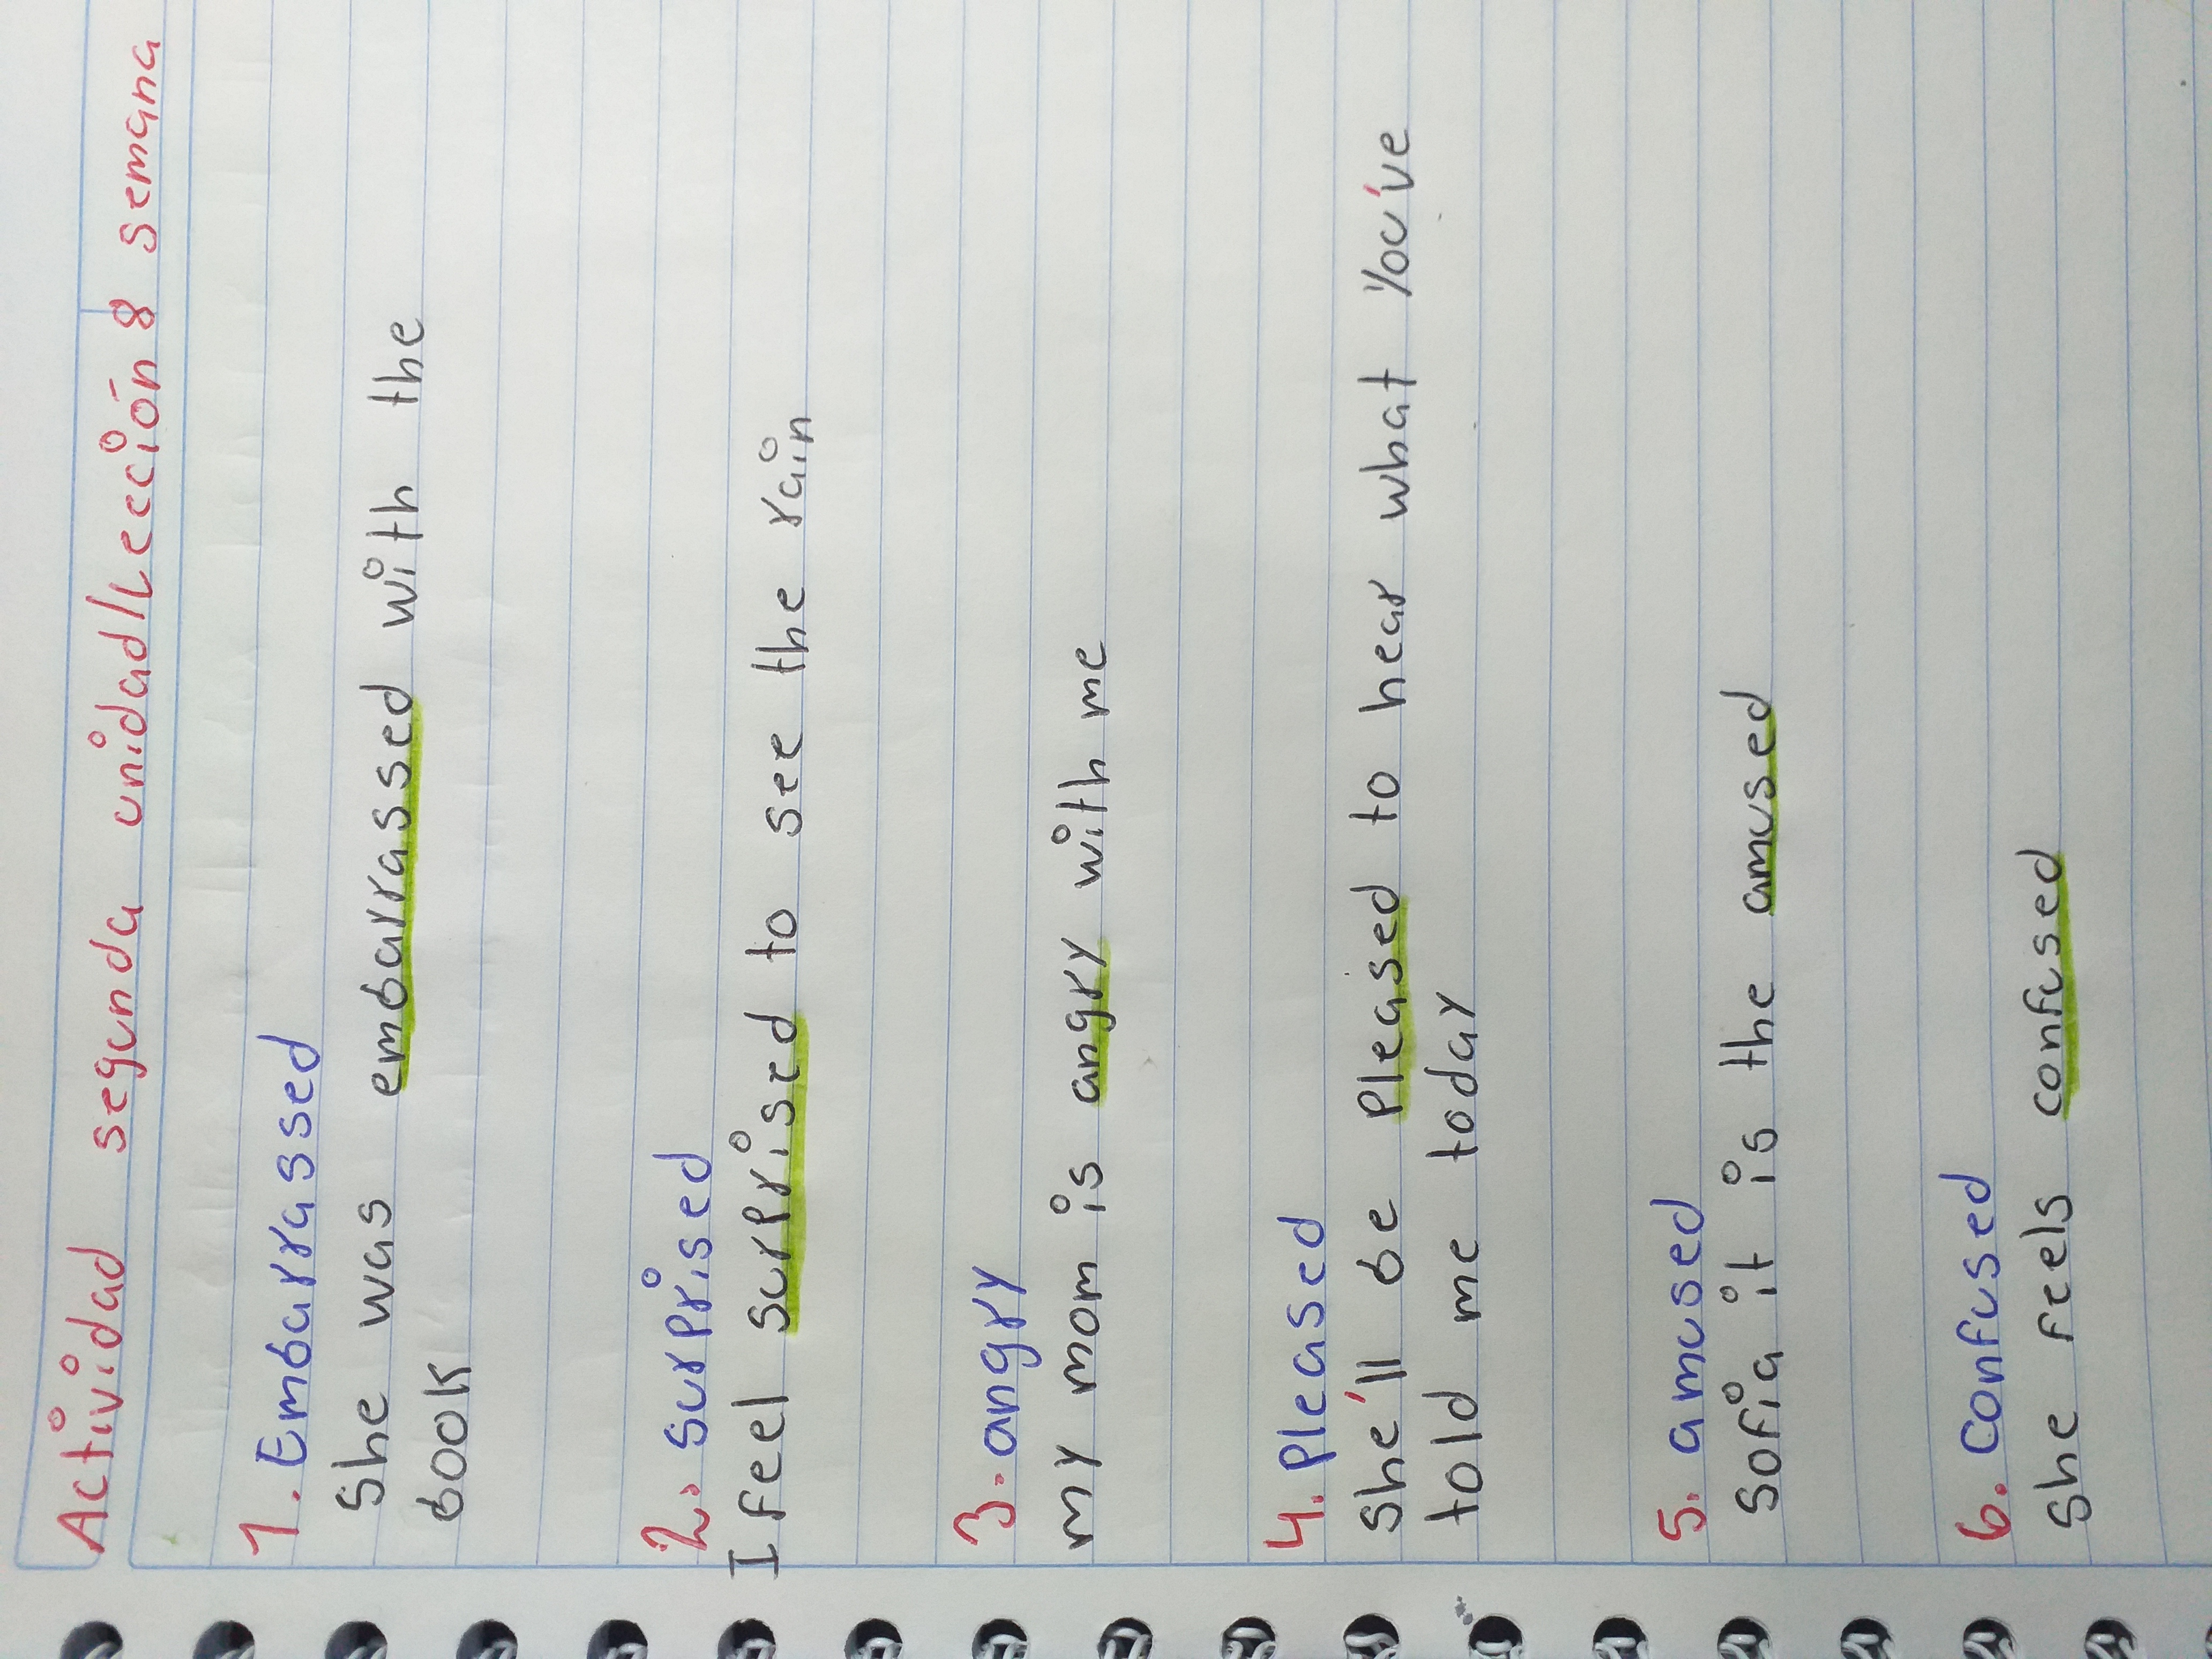 Actividad segunda unidad/Lección 8 semana
1. Embarrassed
She was embarrassed with the
book
2. surprised
I feel surprised to see the rain
3. angry
my mom is angry with me
4. Pleased
She'll be pleased to hear what you've
told me today
5. amused
Sofia it is the amused
6. confused
She feels confused